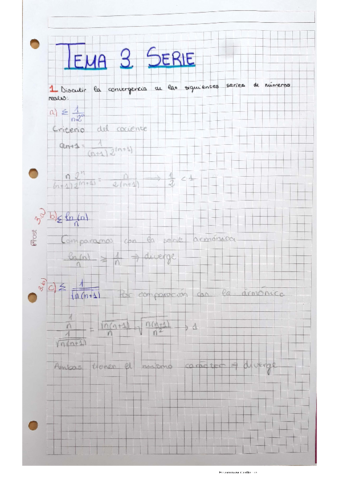 TEMA 3 SERIE
1. Discutir la convergencia de las siguientes series de números
reales:
a) Σ 1/n2ⁿ
Criterio del cociente
an+1 = 1/(n+1)2^(n+1)
n 2ⁿ/(n+1)2^(n+1) = n/2(n+1) → 1/2 < 1
3,a) b) Σ ln(n)/n
Comparamos con la serie armónica
ln(n)/n ≥ 1/n → diverge
3,b) c) Σ 1/√n(n+1) Por comparación con la armónica
1/n / 1/√n(n+1) = √n(n+1)/n = √n(n+1)/n² → 1
Ambas tienen el mismo carácter → diverge